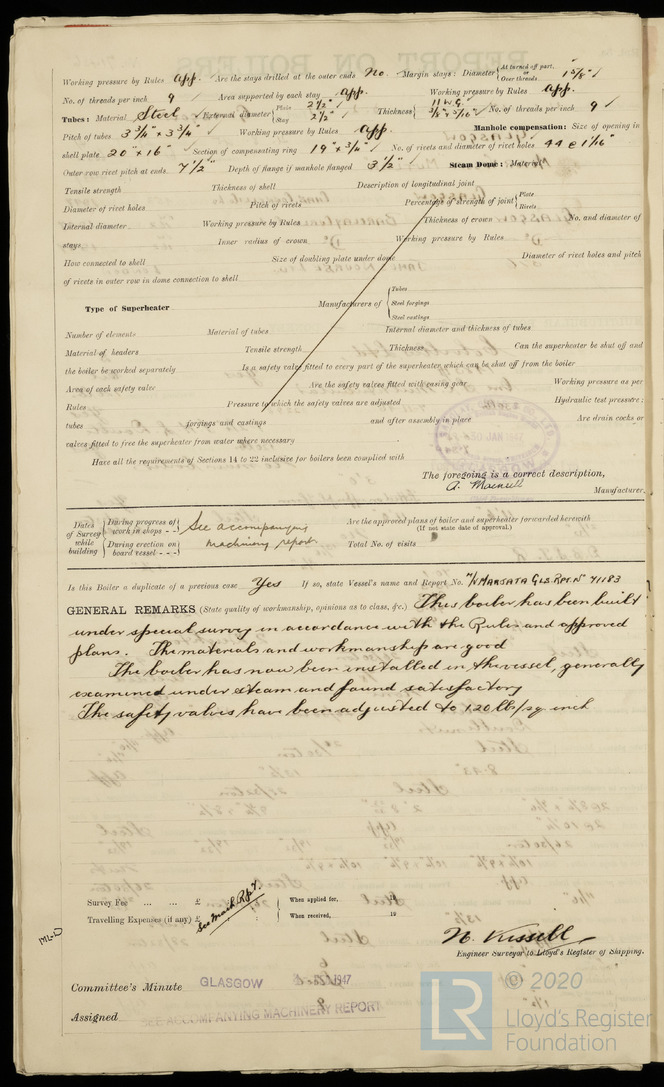 Working pressure by Rules App. Are the stays drilled at the outer ends No. Margin stays: Diameter { At turned off part, or Over threads 1 5/8" ✓
No. of threads per inch 9 ✓ Area supported by each stay App. Working pressure by Rules App.
Tubes: Material Steel ✓ External diameter { Plain 2 1/2" ✓ Stay 2 1/2" ✓ Thickness { 11 W.G. 5/16" ✓ No. of threads per inch 9 ✓
Pitch of tubes 3 3/4" × 3 3/4" ✓ Working pressure by Rules App. Manhole compensation: Size of opening in
shell plate 20" × 16" ✓ Section of compensating ring 19" × 3/4" ✓ No. of rivets and diameter of rivet holes 44 @ 1 1/16"
Outer row rivet pitch at ends 7 1/2" Depth of flange if manhole flanged 3 1/2" ✓ Steam Dome: Material
Tensile strength Thickness of shell Description of longitudinal joint
Diameter of rivet holes Pitch of rivets Percentage of strength of joint { Plate Rivets
Internal diameter Working pressure by Rules Thickness of crown No. and diameter of
stays Inner radius of crown Working pressure by Rules
How connected to shell Size of doubling plate under dome Diameter of rivet holes and pitch
of rivets in outer row in dome connection to shell
Type of Superheater Manufacturers of { Tubes Steel forgings Steel castings
Number of elements Material of tubes Internal diameter and thickness of tubes
Material of headers Tensile strength Thickness Can the superheater be shut off and
the boiler be worked separately Is a safety valve fitted to every part of the superheater which can be shut off from the boiler
Area of each safety valve Are the safety valves fitted with easing gear Working pressure as per
Rules Pressure to which the safety valves are adjusted Hydraulic test pressure:
tubes forgings and castings and after assembly in place Are drain cocks or
valves fitted to free the superheater from water where necessary
Have all the requirements of Sections 14 to 22 inclusive for boilers been complied with
The foregoing is a correct description,
Manufacturer.
Dates of Survey while building { During progress of work in shops - - During erection on board vessel - - - } See accompanying machinery report. Are the approved plans of boiler and superheater forwarded herewith (If not state date of approval.)
Total No. of visits
Is this Boiler a duplicate of a previous case Yes If so, state Vessel's name and Report No. M/V MANJATA GLS. RPT. No 71183
GENERAL REMARKS (State quality of workmanship, opinions as to class, &c.) This boiler has been built
under special survey in accordance with the Rules and approved
plans. The materials and workmanship are good
The boiler has now been installed in the vessel, generally
examined under steam and found satisfactory
The safety valves have been adjusted to 120 lbs/sq inch
Survey Fee ... ... £ See Mach. Rpt. When applied for, 19
Travelling Expenses (if any) £ When received, 19
N. Kissell
Engineer Surveyor to Lloyd's Register of Shipping.
Committee's Minute GLASGOW 1947
Assigned SEE ACCOMPANYING MACHINERY REPORT
LR © 2020
Lloyd's Register
Foundation